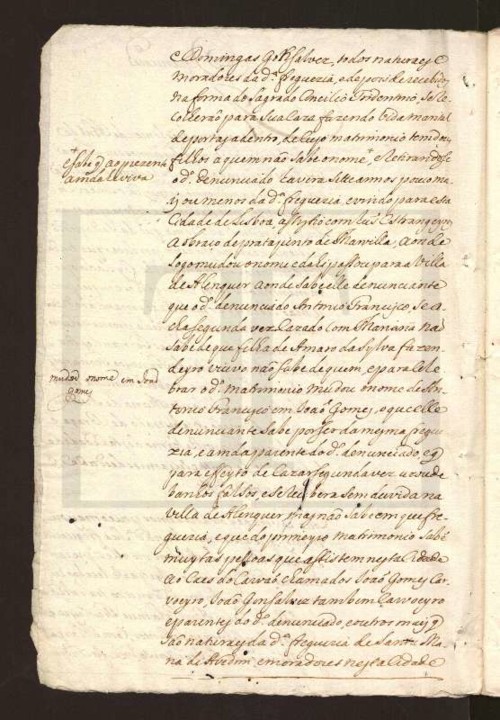 e Domingas Gonsalvez, todos naturaes e
moradores da d.ª freguezia, e depois de recebidos
na forma do Sagrado Concilio Tridentino, se re
colherão para sua caza fazendo vida marital
de portas adentro, de cujo matrimonio tem dous
filhos a quem não sabe o nome, e retirandose
o d.º denunciado haverá sette annos pouco ma
is ou menos da d.ª freguezia, e vindo para esta
Cidade de Lisboa, assistio com Luis Estrangeyro
a o braço de prata junto de Marvilla, aonde
logo mudou o nome e dali passou para a Villa
de Alenquer aonde sabe elle denunciante
que o d.º denunciado Antonio Francisco, se a
cha segunda vez cazado com Mariana não
sabe de que filha de Amaro da Sylva fazen
deyro viuvo não sabe de quem, e para cele
brar o d.º matrimonio mudou o nome de An
tonio Francisco em João Gomes, o que elle
denunciante sabe por ser da mesma fregue
zia, e ainda parente do d.º denunciado, e q
para effeyto de cazar segunda vez uzou de
banhos falsos, e se recebera sem duvida na
villa de Alenquer, mas não sabe em que fre
guezia, e que do primeyro matrimonio sabem
muytas pessoas que assistem nesta Cidade
ao Caes do Carvão, chamados João Gomes Car
voeyro, João Gonsalvez tambem Carvoeyro
e parentes do d.º denunciado, e outros mais q
são naturaes da d.ª freguezia de Santa Ma
ria de Alvedim, e moradores nesta Cidade
e sabe q ao prezente
ainda he viva
mudar o nome em João
Gomes